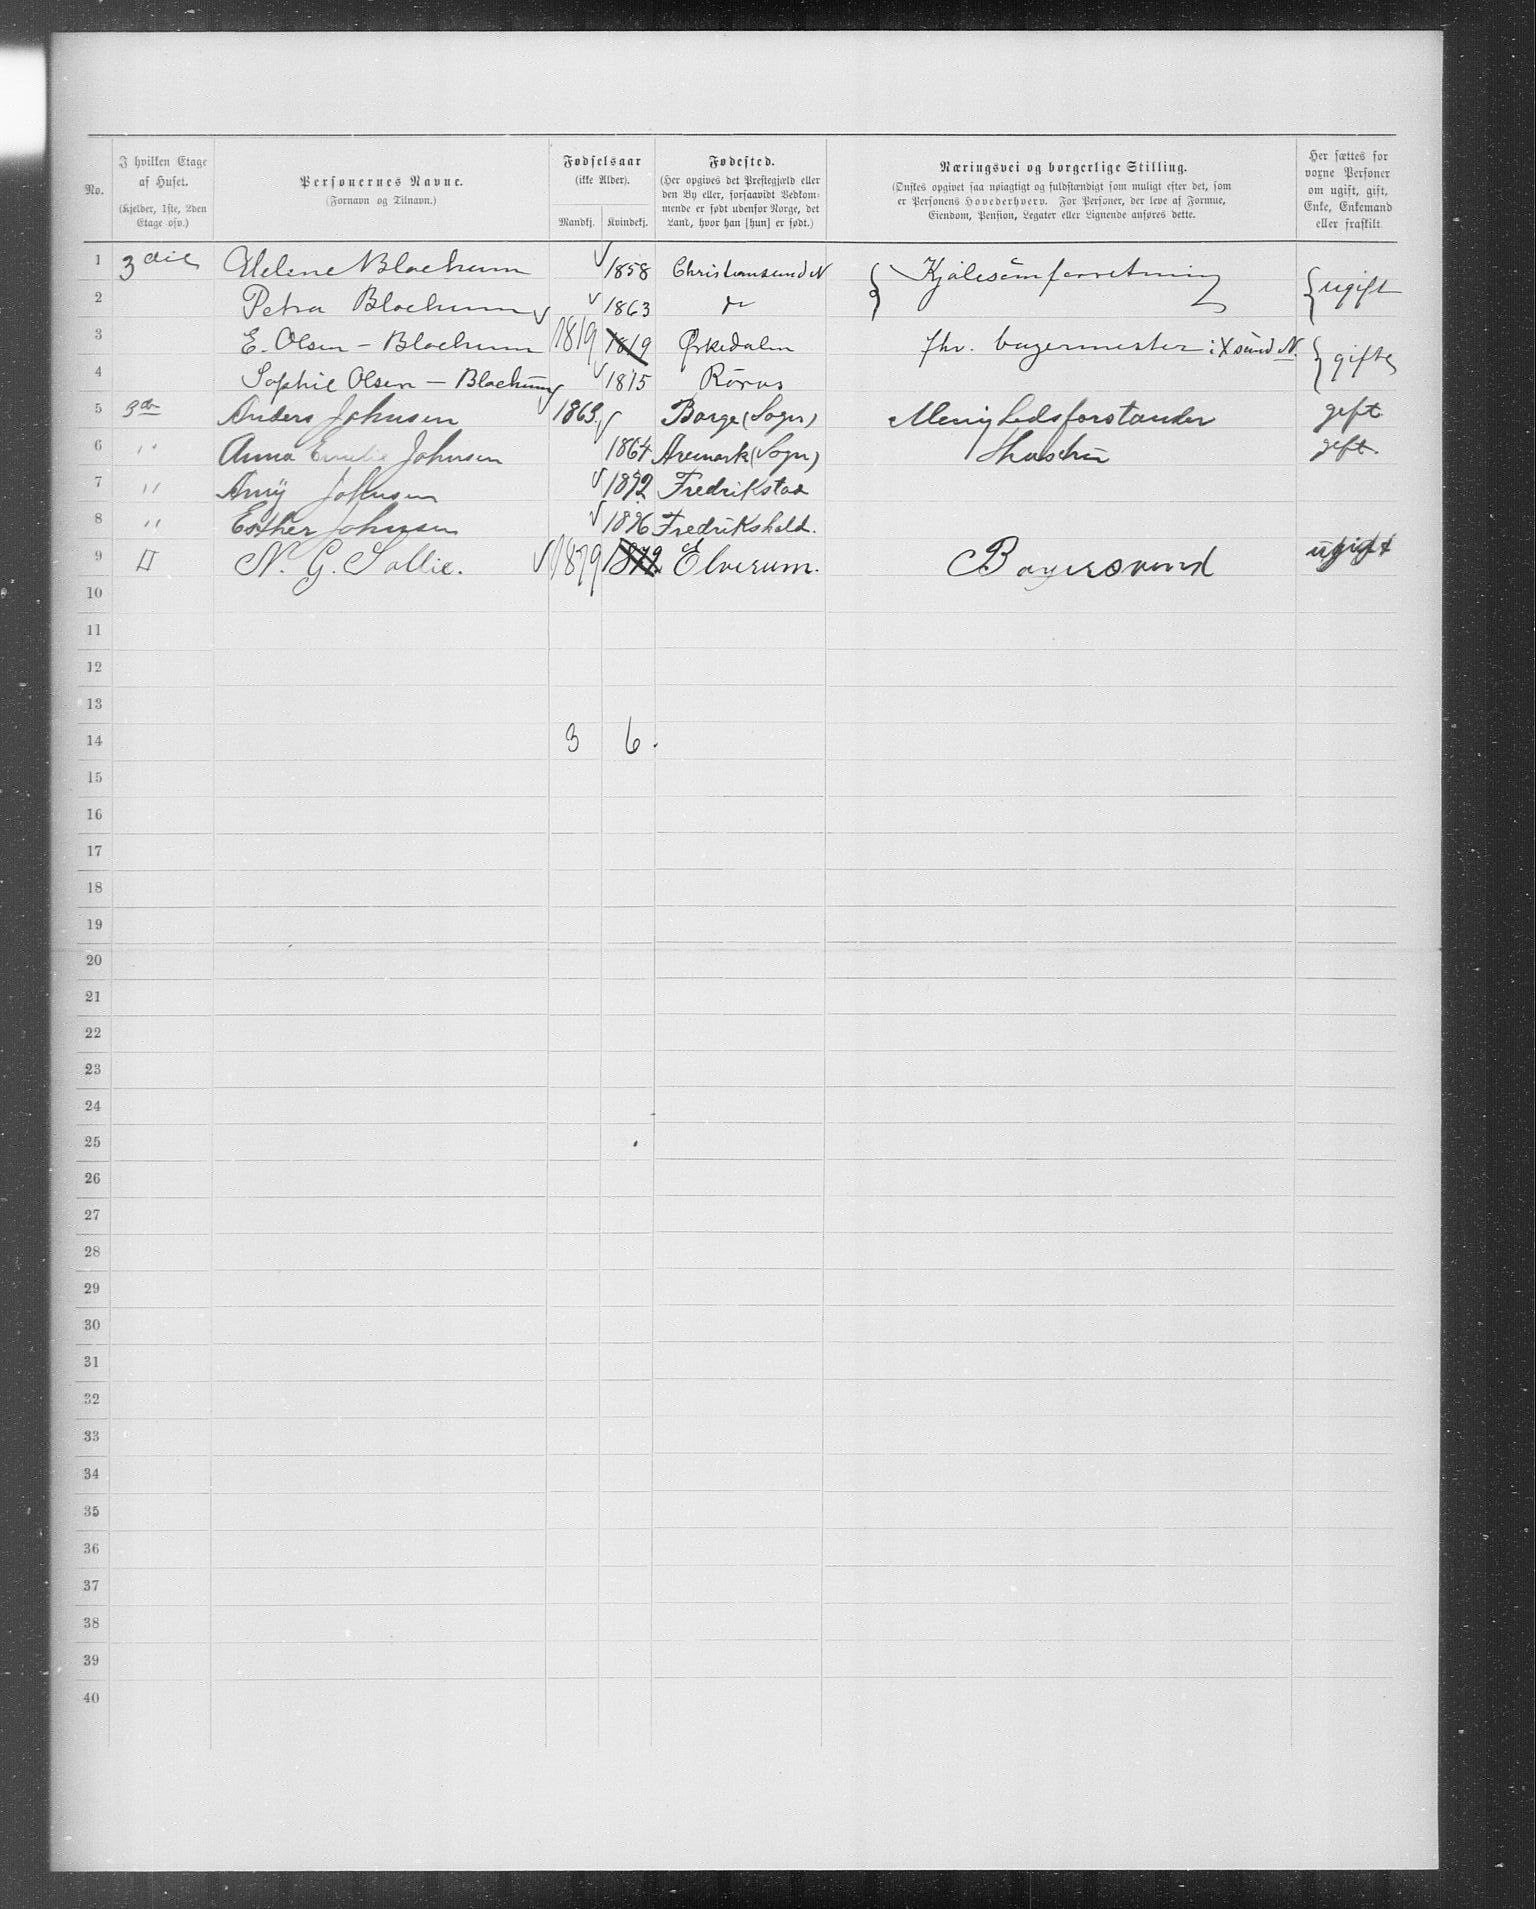 No.
I hvilken Etage af Huset.
(Kjelder, 1ste, 2den Etage osv.)
Personernes Navne.
(Fornavn og Tilnavn.)
Fødselsaar
(ikke Alder).
Mandkj. Kvindekj.
Fødested.
(Her opgives det Prestegjæld eller
den By eller, forsaavidt Vedkom-
mende er født udenfor Norge, det
Land, hvor han [hun] er født.)
Næringsvei og borgerlige Stilling.
(Ønskes opgivet saa nøiagtigt og fuldstændigt som muligt efter det, som
er Personens Hovederhverv. For Personer, der leve af Formue,
Eiendom, Pension, Legater eller Lignende anføres dette.
Her sættes for
voxne Personer
om ugift, gift,
Enke, Enkemand
eller fraskilt.
1 3die Helene Blackum 1858 Christiansund N Kjolesömforretning ugift
2 Petra Blackum 1863 do
3 E. Olsen - Blackum 1819 1819 Ørkedalen fhv. bagermester i Xsund N. gifte
4 Sophie Olsen - Blackum 1815 Röros
5 3die Anders Johnsen 1863 Borge (Sogn) Menighedsforstander gift
6 " Anna Emilie Johnsen 1864 Aremark (Sogn) Hustru gift
7 " Anny Johnsen 1892 Fredrikstad
8 " Esther Johnsen 1896 Fredrikshald.
9 " N. G. Sollie. 1879 1879 Elverum. Bagersvend ugift
10
11
12
13
14 3 6.
15
16
17
18
19
20
21
22
23
24
25
26
27
28
29
30
31
32
33
34
35
36
37
38
39
40